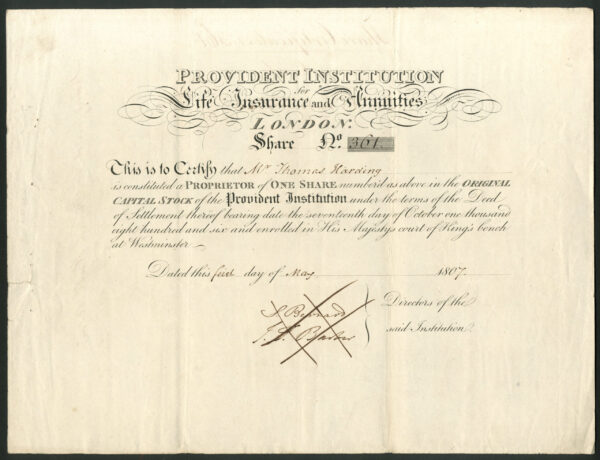 PROVIDENT INSTITUTION
for
Life Insurance and Annuities
LONDON.
Share No. 361
This is to Certify that Mr. Thomas Harding
is constituted a PROPRIETOR OF ONE SHARE number'd as above in the ORIGINAL
CAPITAL STOCK of the Provident Institution under the terms of the Deed
of Settlement thereof bearing date the seventeenth day of October one thousand
eight hundred and six and enrolled in His Majesty's court of King's bench
at Westminster
Dated this first day of May 1807.
Bernard
Directors of the
Barber
said Institution.